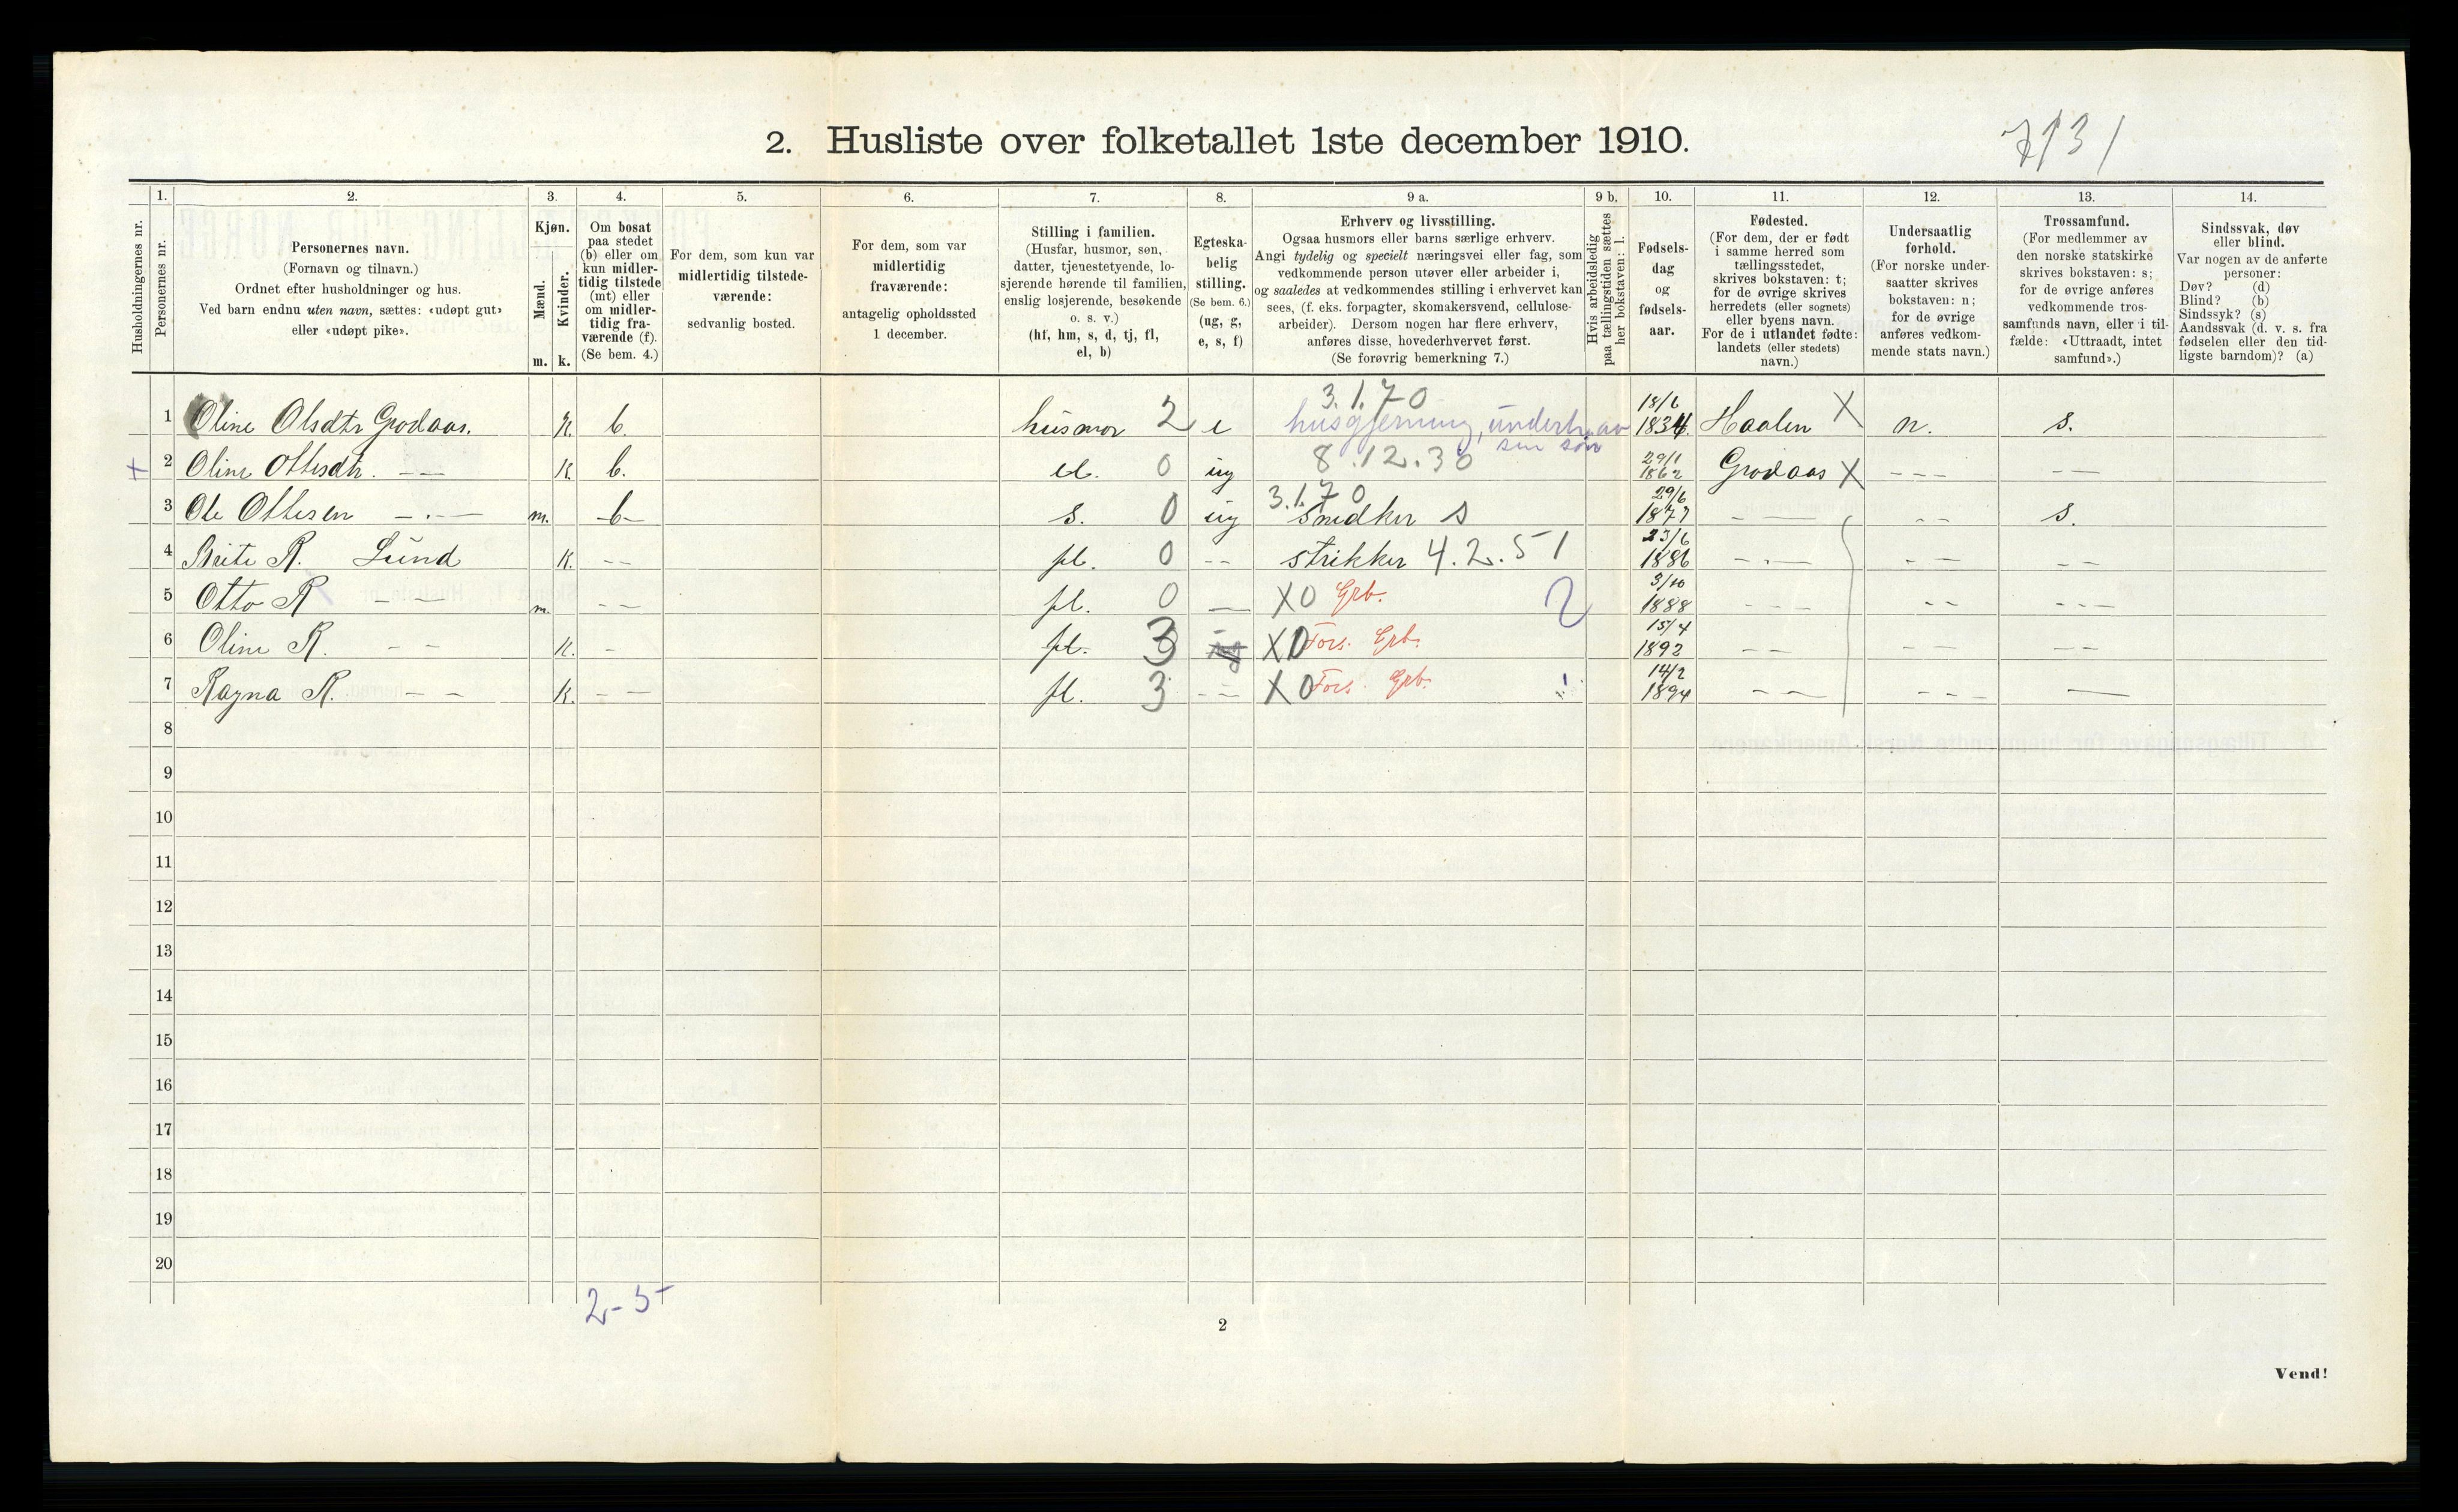 2. Husliste over folketallet 1ste december 1910.
7131
1. 2. 3. 4. 5. 6. 7. 8. 9 a. 9 b. 10. 11. 12. 13. 14.
Husholdningernes nr.
Personernes nr.
Personernes navn.
(Fornavn og tilnavn.)
Ordnet efter husholdninger og hus.
Ved barn endnu uten navn, sættes: «udøpt gut»
eller «udøpt pike».
Kjøn.
Mænd.
Kvinder.
m. k.
Om bosat
paa stedet
(b) eller om
kun midler-
tidig tilstede
(mt) eller
om midler-
tidig fra-
værende (f).
(Se bem. 4.)
For dem, som kun var
midlertidig tilstede-
værende:
sedvanlig bosted.
For dem, som var
midlertidig
fraværende:
antagelig opholdssted
1 december.
Stilling i familien.
(Husfar, husmor, søn,
datter, tjenestetyende, lo-
sjerende hørende til familien,
enslig losjerende, besøkende
o. s. v.)
(hf, hm, s, d, tj, fl,
el, b)
Egteska-
belig
stilling.
(Se bem. 6.)
(ug, g,
e, s, f)
Erhverv og livsstilling.
Ogsaa husmors eller barns særlige erhverv.
Angi tydelig og specielt næringsvei eller fag, som
vedkommende person utøver eller arbeider i,
og saaledes at vedkommendes stilling i erhvervet kan
sees, (f. eks. forpagter, skomakersvend, cellulose-
arbeider). Dersom nogen har flere erhverv,
anføres disse, hovederhvervet først.
(Se forøvrig bemerkning 7.)
Hvis arbeidsledig
paa tællingstiden sættes
her bokstaven: l.
Fødsels-
dag
og
fødsels-
aar.
Fødested.
(For dem, der er født
i samme herred som
tællingsstedet,
skrives bokstaven: t;
for de øvrige skrives
herredets (eller sognets)
eller byens navn.
For de i utlandet fødte:
landets (eller stedets)
navn.)
Undersaatlig
forhold.
(For norske under-
saatter skrives
bokstaven: n;
for de øvrige
anføres vedkom-
mende stats navn.)
Trossamfund.
(For medlemmer av
den norske statskirke
skrives bokstaven: s;
for de øvrige anføres
vedkommende tros-
samfunds navn, eller i til-
fælde: «Uttraadt, intet
samfund».)
Sindssvak, døv
eller blind.
Var nogen av de anførte
personer:
Døv? (d)
Blind? (b)
Sindssyk? (s)
Aandssvak (d. v. s. fra
fødselen eller den tid-
ligste barndom)? (a)
3.1.70 18/6
1 Oline Olsdtr Grodaas. K. b. husmor 2 e husgjerning, underh. av 1834. Haalen X n. s.
sin søn
8.12.30 29/1
+ 2 Oline Ottesdtr. — — K. b. el. 0 ug 1862 Grodaas X - - - — —
3.1.70 29/6
3 Ole Ottesen — . — m. b s. 0 ug snedker s 1877 - — - - s.
23/6
4 Brite R. Lund K. - - fl. 0 - - strikker 4.2.51 1886 - . - - - - -
3/10
5 Otto R - - m. - - fl. 0 — X0 Grb. 2 1888 - - - - - - - -
15/4
6 Oline R. - - K. - fl. 3 X0 Fors. Grb. 1892 - - - - - -
14/2
7 Ragna R. - - K. - - fl. 3 - - X0 Fors. Grb. 1894 - - - - - —
8
9
10
11
12
13
14
15
16
17
18
19
20
2 - 5
2
Vend!